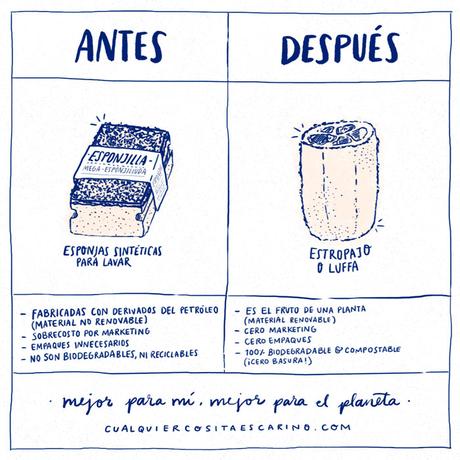 ANTES
DESPUÉS
ESPONJILLA
MEGA-ESPONJILINDA
ESPONJAS SINTÉTICAS
PARA LAVAR
ESTROPAJO
O LUFFA
- FABRICADAS CON DERIVADOS DEL PETRÓLEO
(MATERIAL NO RENOVABLE)
- SOBRECOSTO POR MARKETING
- EMPAQUES INNECESARIOS
- NO SON BIODEGRADABLES, NI RECICLABLES
- ES EL FRUTO DE UNA PLANTA
(MATERIAL RENOVABLE)
- CERO MARKETING
- CERO EMPAQUES
- 100% BIODEGRADABLE & COMPOSTABLE
(¡CERO BASURA!)
· mejor para mí, mejor para el planeta ·
CUALQUIERCOSITAESCARINO.COM